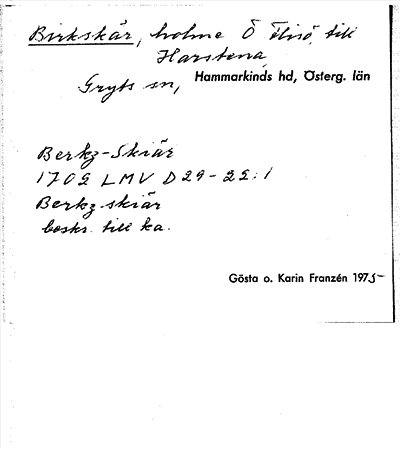 Birkskär, holme Ö Flisö, till
Harstena,
Gryts sn, Hammarkinds hd, Österg. län
Berkz-Skiär
1702 LMV D 29-22:1
Berkz-skiär
beskr. till ka.
Gösta o. Karin Franzén 1975